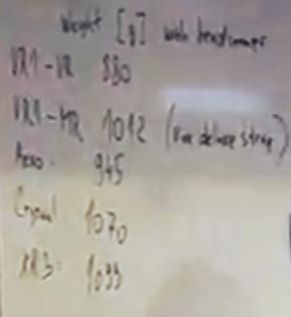 Weight [g] with headcover
VR1-VR 880
VR1-MR 1012 (Vive deluxe strap)
Aero: 945
Crystal: 1070
XR3: 1099